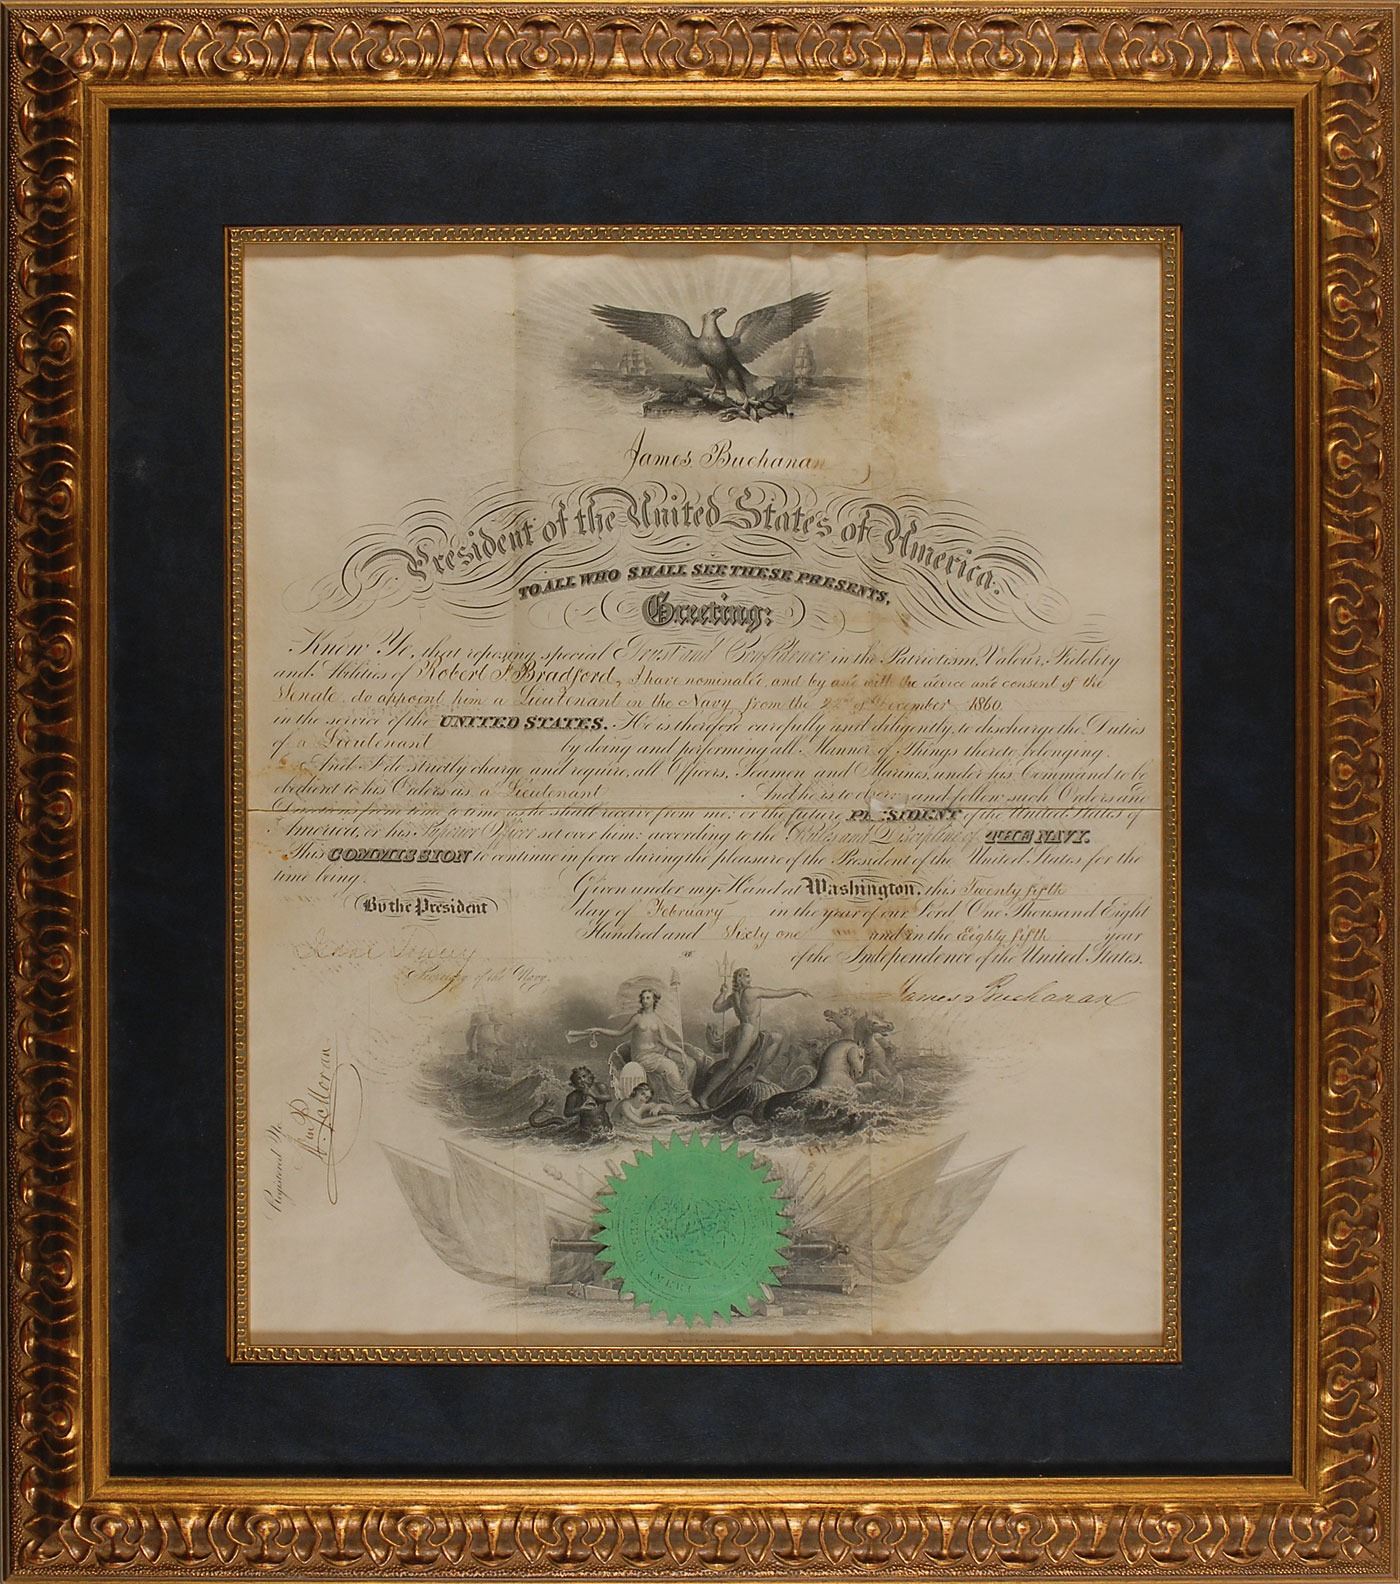 James Buchanan
President of the United States of America.
TO ALL WHO SHALL SEE THESE PRESENTS,
Greeting:
Know Ye, that reposing special Trust and Confidence in the Patriotism, Valour, Fidelity
and Abilities of Robert F. Bradford, I have nominated, and by and with the advice and consent of the
Senate, do appoint him a Lieutenant in the Navy from the 22d of December 1860
in the service of the UNITED STATES. He is therefore carefully and diligently to discharge the Duties
of a Lieutenant by doing and performing all Manner of Things thereto belonging.
And I do strictly charge and require, all Officers, Seamen and Marines, under his Command to be
obedient to his Orders as a Lieutenant And he is to observe and follow such Orders and
Directions from time to time as he shall receive from me, or the future PRESIDENT of the United States of
America, or his Superior Officer set over him; according to the Rules and Discipline of THE NAVY.
This COMMISSION to continue in force during the pleasure of the President of the United States for the
time being.
Given under my Hand at Washington, this Twenty fifth
By the President
day of February in the year of our Lord One Thousand Eight
Hundred and Sixty one and in the Eighty fifth year
of the Independence of the United States.
Isaac Toucey
Secretary of the Navy.
James Buchanan
Registered No.
Wm P. S. Moran